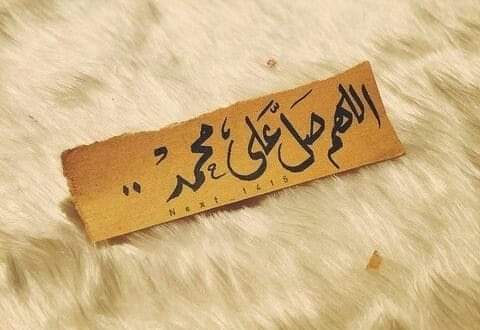 اللهم صلَّ على محمد ..
Next_1415